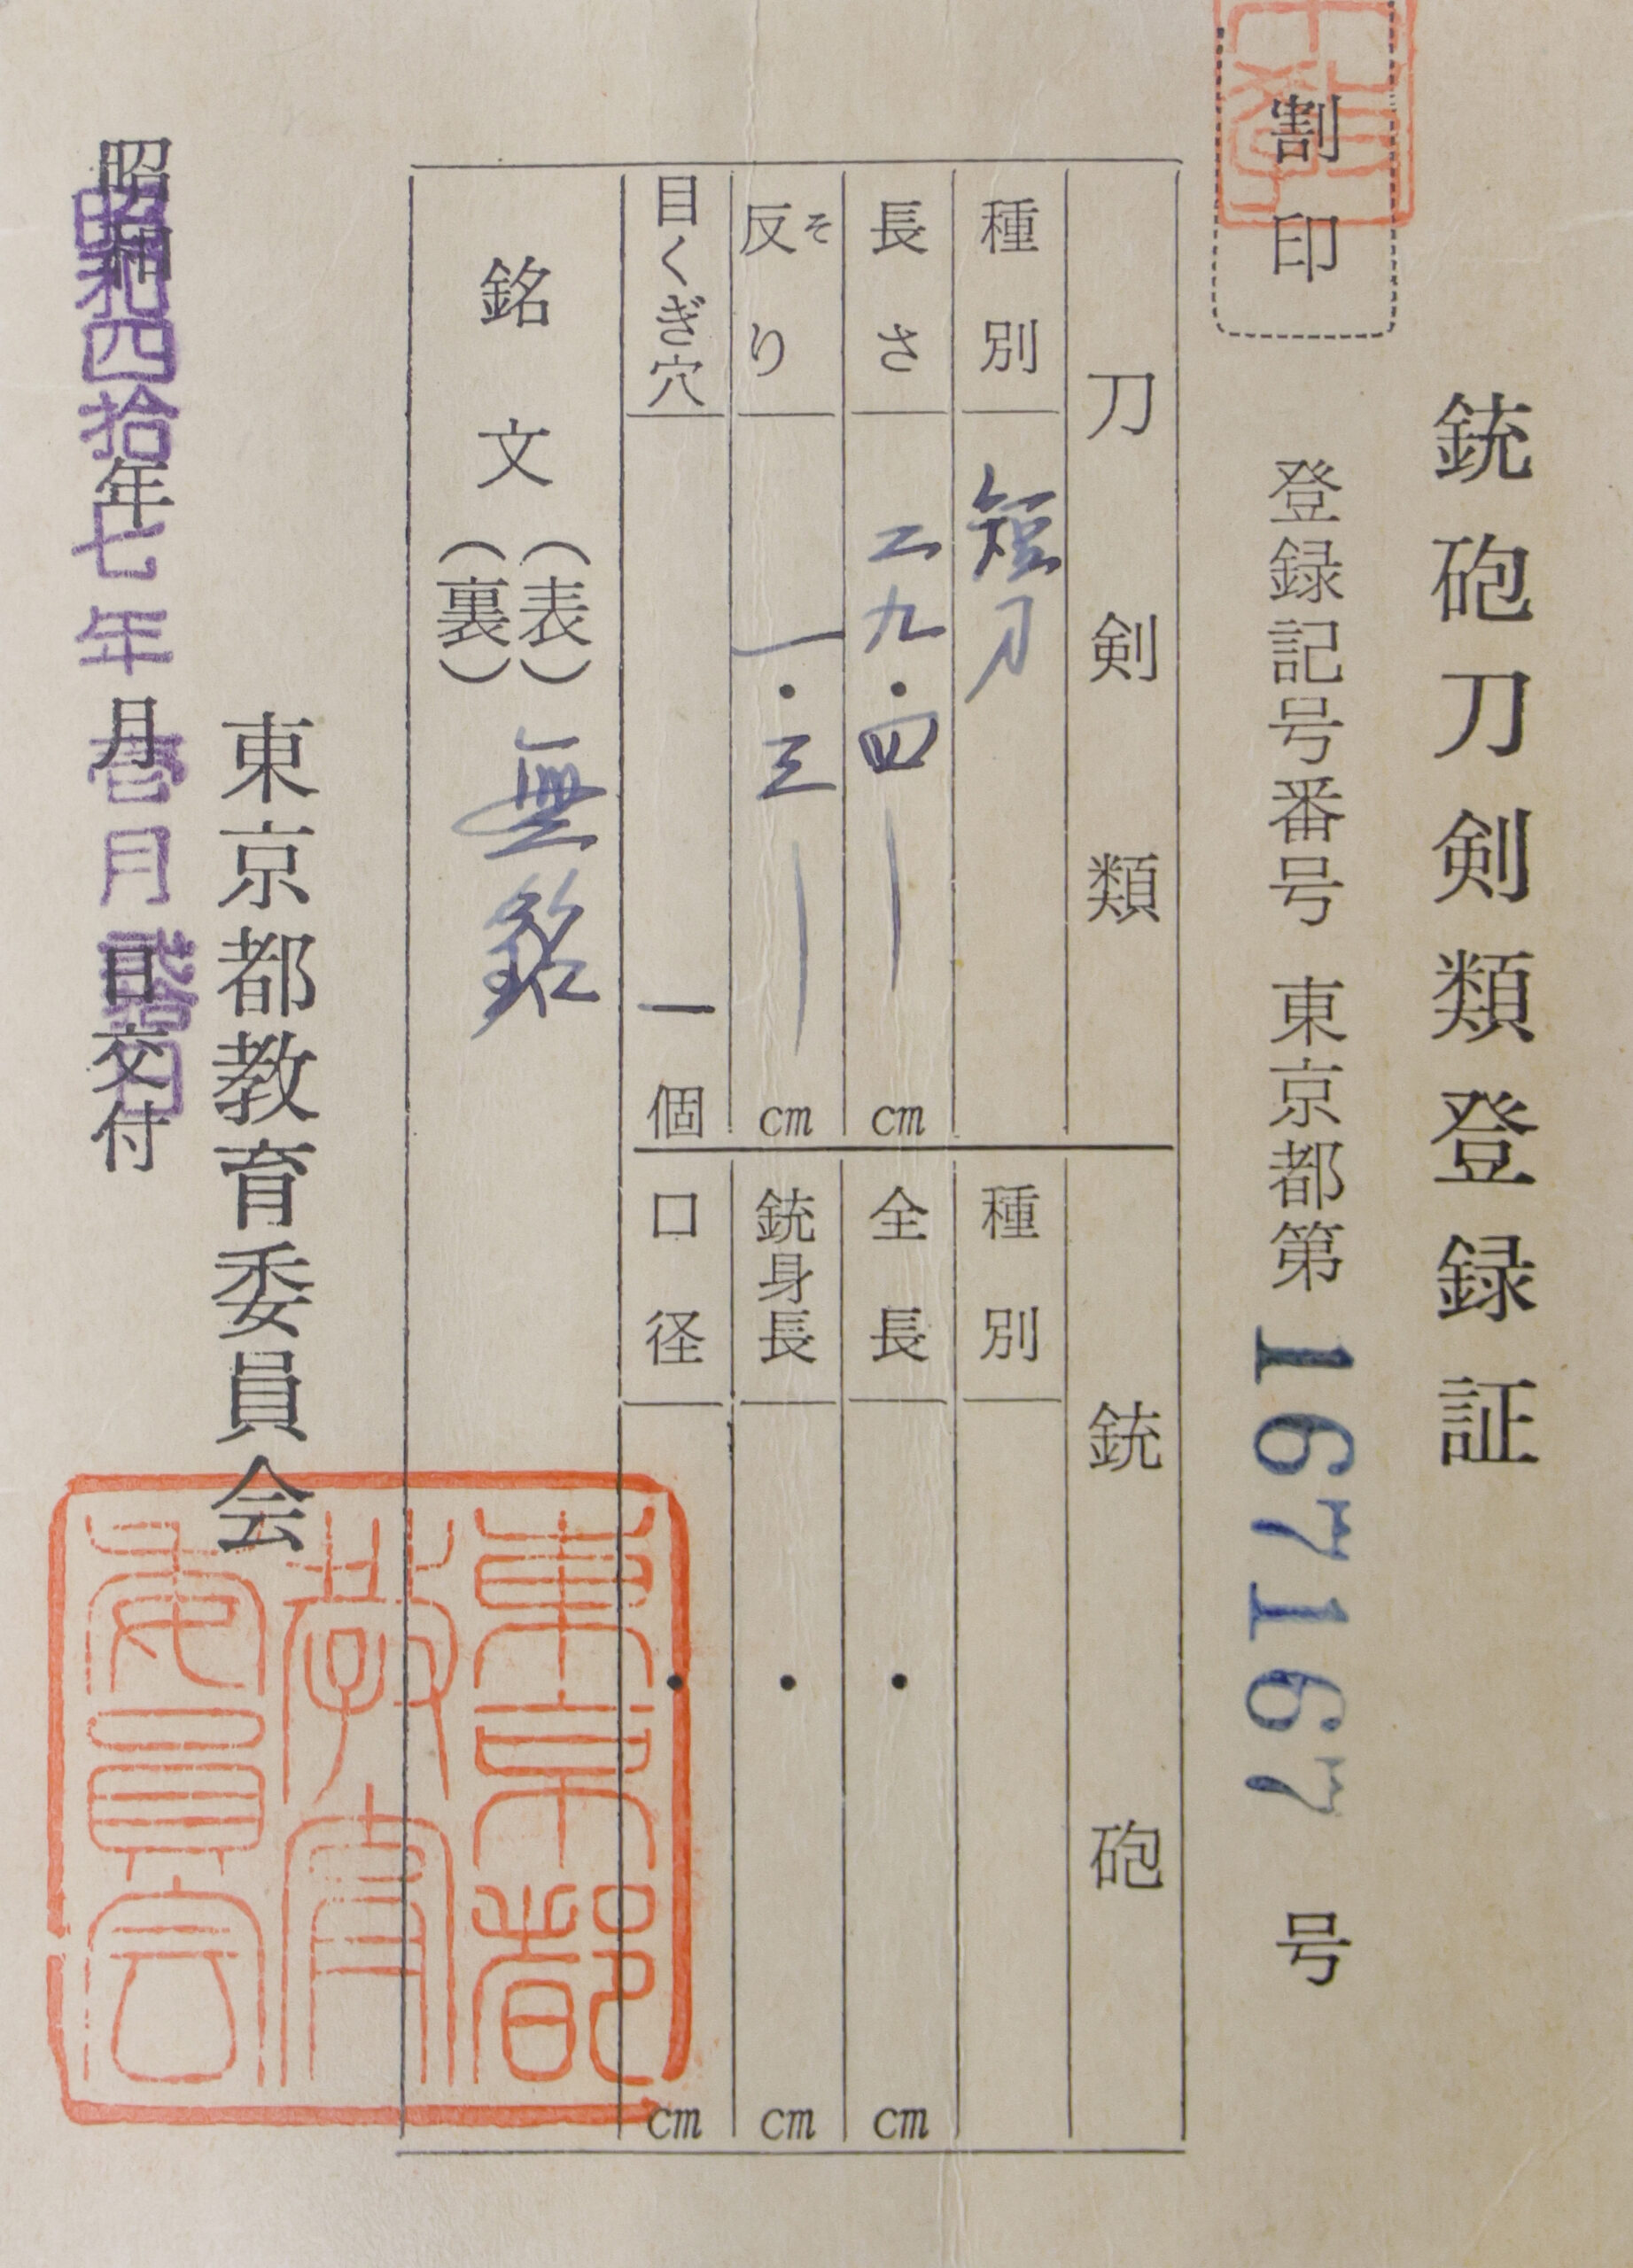 銃砲刀剣類登録証
割印
登録記号番号 東京都第167167号
刀剣類
種別 短刀
長さ 二九・四 cm
反り そ 一・三 cm
目くぎ穴 一個
銘文(表)(裏) 無銘
銃砲
種別
全長 ・ cm
銃身長 ・ cm
口径 ・ cm
東京都教育委員会
昭和 年 月 日交付
昭和四拾七年壱月弐拾日
東京都教育委員会